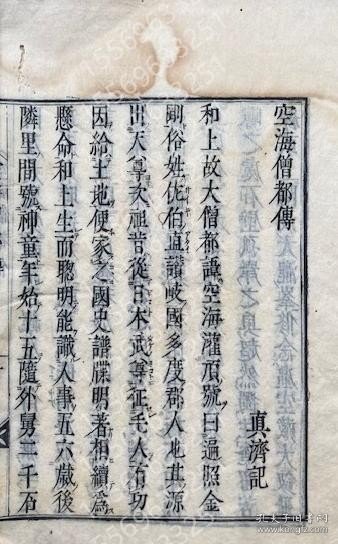 空海僧都傳
眞濟記
和上故大僧都諱空海灌頂號曰遍照金
剛俗姓佐伯直讃岐國多度郡人也其源
出天尊次祖昔從日本武尊征毛人有功
因給土地便家之國史譜牒明著相續爲
懸命和上生而聰明能識人事五六歳後
隣里間號神童年始十五隨外舅二千石
孔夫子旧书网